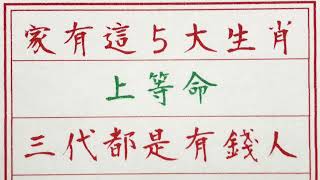 家有這5大生肖
上等命
三代都是有錢人